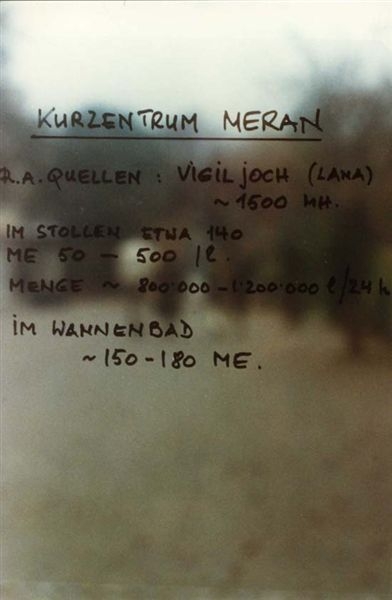 KURZENTRUM MERAN
R.A. QUELLEN : VIGIL JOCH (LANA)
~ 1500 MH.
IM STOLLEN ETWA 140
ME 50 – 500 / l.
MENGE ~ 800.000 – 1.200.000 l/24 h
IM WANNENBAD
~ 150 - 180 ME.